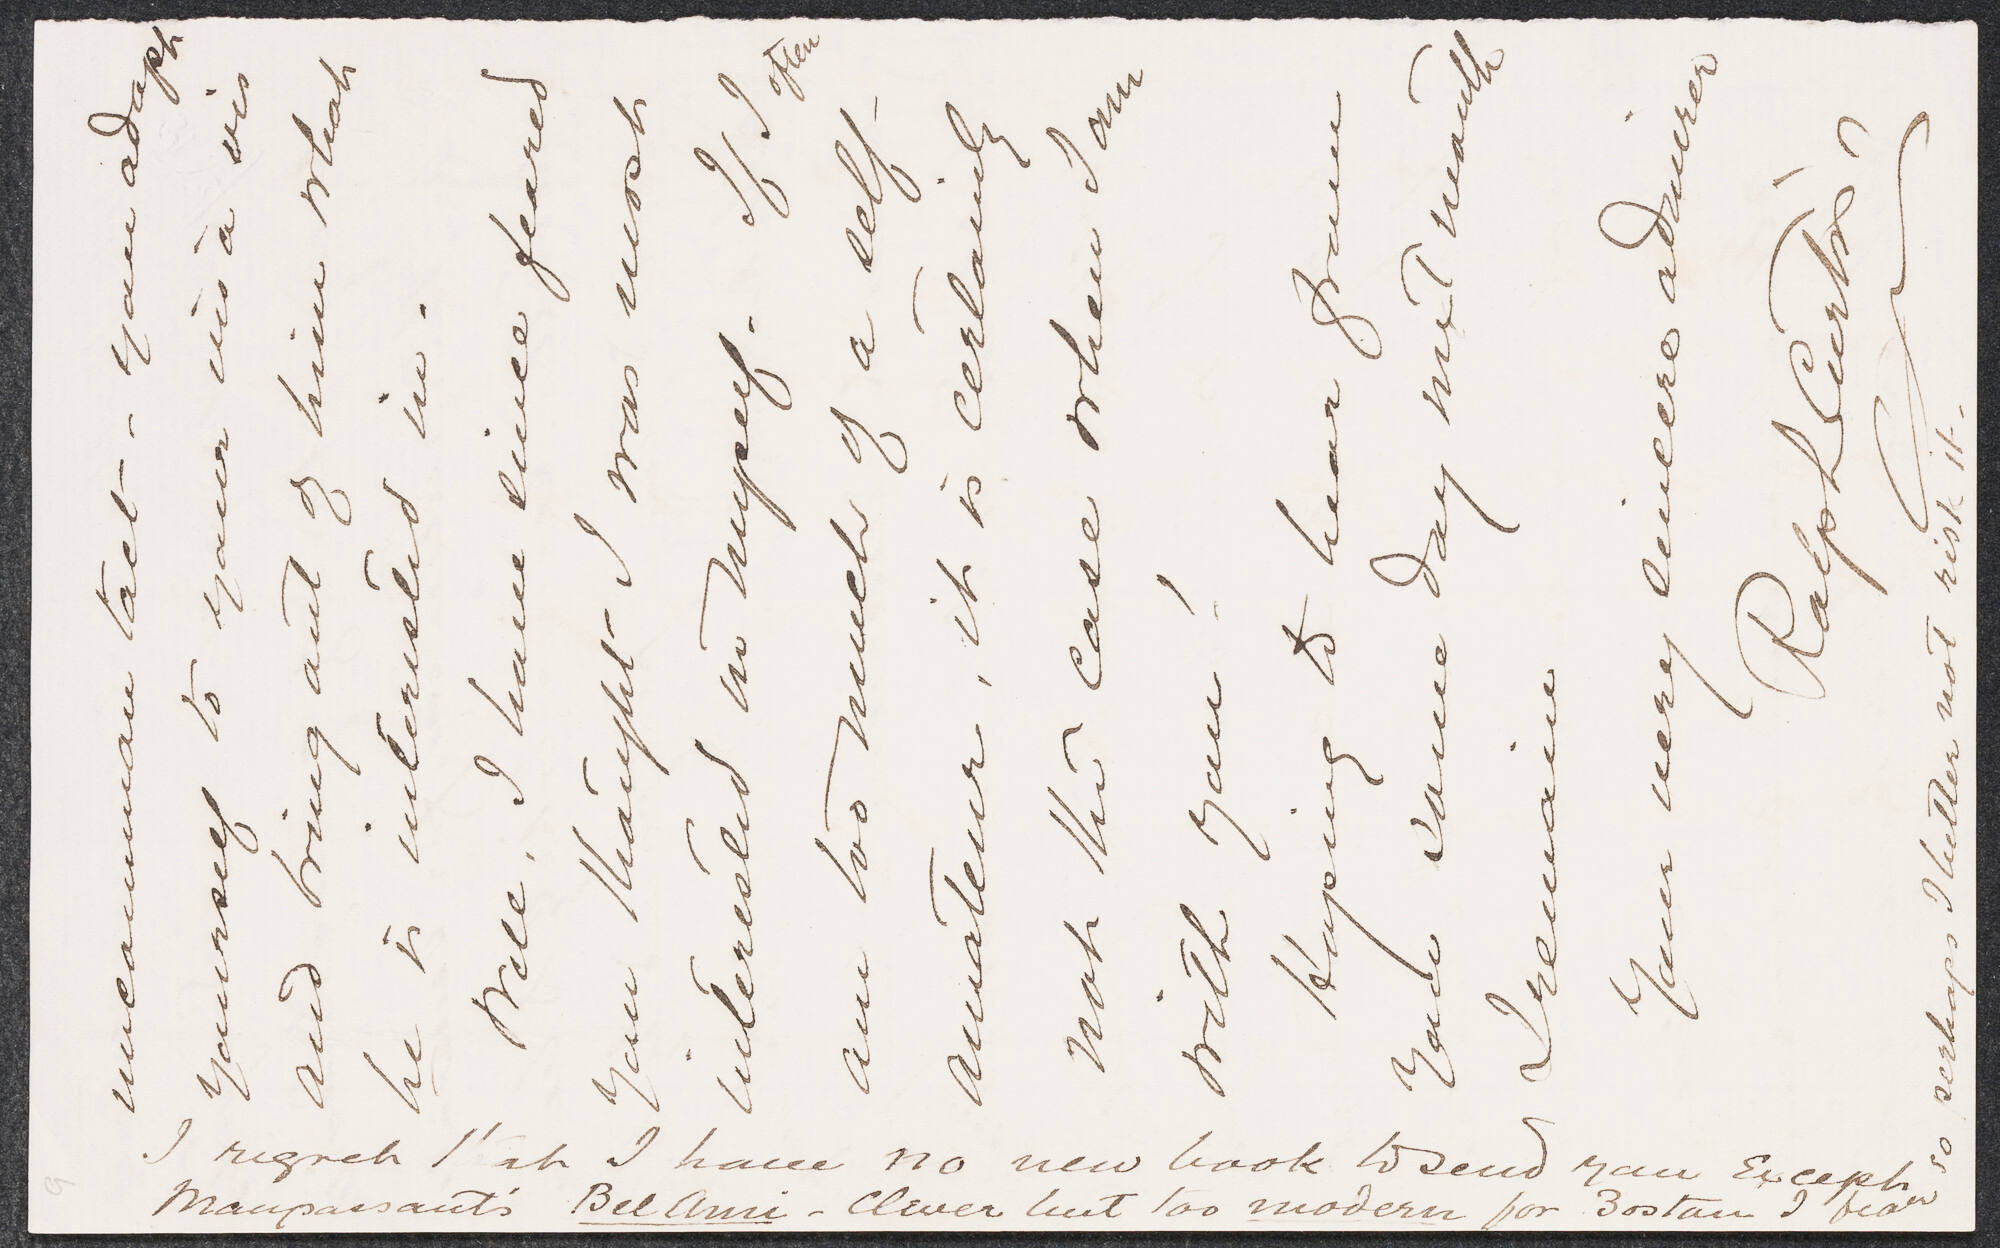 uncommon tact - you adapt
yourself to your vis à vis
and bring out of him what
he is interested in.
Well, I have since feared
you thought I was most
interested in myself. If I often
am too much of a self-
amateur, it is certainly
not the case when I am
with you!
Hoping to hear from
you some day next month
I remain
Your very sincere admirer
Ralph Curtis
I regret that I have no new book to send you Except
Maupassant's Bel Ami - Clever but too modern for Boston I fear
so perhaps I better not risk it -